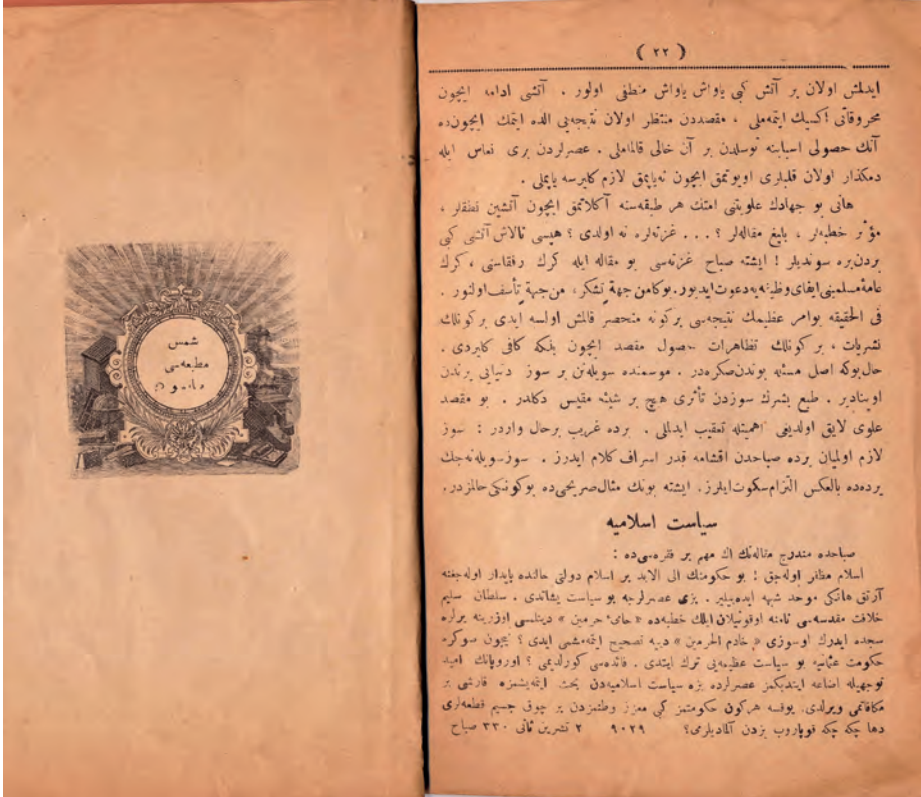 ( ٢٢ )
ايدلمش اولان بر آتش كبى ياواش ياواش منطفى اولور . آتشى ادامه ايچون
محروقاتى اكسيك ايتمه‌ملى ، مقصددن منتظر اولان نتيجه‌يى الده ايتمك ايچون‌ده
آنك حصولى اسبابنه توسلدن بر آن خالى قالماملى . عصرلردن برى نعاس ايله
دمكذار اولان قلبلرى اويوتمق ايچون نه‌ياپمق لازم كليرسه ياپملى .
هانى بو جهادك علويتنى امتك هر طبقه‌سنه آكلاتمق ايچون آتشين نطقلر ،
مؤثر خطبه‌لر ، بليغ مقاله‌لر ؟ . . . غزته‌لره نه اولدى ؟ هپسى تالاش آتشى كبى
بردن‌بره سونديلر ! ايشته صباح غزته‌سى بو مقاله ايله كرك رفقاسنى ، كرك
عامهٔ مسلمينى ايفاى وظيفه‌يه دعوت ايديور. بوكا من جهة تشكر ، من جهة تأسف اولنور .
فى الحقيقه بو امر عظيمك نتيجه‌سى بر كونه منحصر قالمش اولسه ايدى بر كونلك
نشريات ، بر كونلك تظاهرات حصول مقصد ايچون بلكه كافى كليردى .
حال‌بوكه اصل مسئله بوندن‌صكره‌در . موسمنده سويلنن بر سوز دنيايى يرندن
اوينادير . طبع بشرك سوزدن تأثرى هيچ بر شيئه مقيس دكلدر . بو مقصد
علوى لايق اولديغى اهميتله تعقيب ايدلملى . برده غريب برحال واردر : سوز
لازم اولميان يرده صباحدن اقشامه قدر اسراف كلام ايدرز . سوز سويله‌نه‌جك
يرده‌ده بالعكس التزام سكوت ايلرز. ايشته بونك مثال صريحى‌ده بوكونكى حالمزدر.
سياست اسلاميه
صباحده مندرج مقاله‌نك اك مهم بر فقره‌سى‌ده :
اسلام مظفر اوله‌جق ! بو حكومتك الى الابد بر اسلام دولتى حالنده پايدار اوله‌جغنه
آرتق هانكى موحد شبهه ايده‌بيلير . بزى عصرلرجه بو سياست يشاتدى . سلطان سليم
خلافت مقدسه‌سى نامنه اوقونيلان ايلك خطبه‌ده « حامىٔ حرمين » دينلسى اوزرينه يرلره
سجده ايدرك اوسوزى « خادم الحرمين » ديه تصحيح ايتمه‌مشمى ايدى ؟ نيچون سوكره
حكومت عثمانيه بو سياست عظيمه‌يى ترك ايتدى . فائده‌سى كورلديمى ؟ اوروپانك اميد
توجهيله اضاعه ايتديكمز عصرلرده بزه سياست اسلاميه‌دن بحث ايتمه‌يشمزه قارشى بر
مكافاتمى ويرلدى. يوقسه هركون حكومتمز كبى معزز وطنمزدن بر چوق جسيم قطعه‌لرى
دها چكه چكه قوپاروب بزدن آلماديلرمى؟ ٩٠٢٩ ٢ تشرين ثانى ٣٣٠ صباح
شمس
مطبعه‌سى